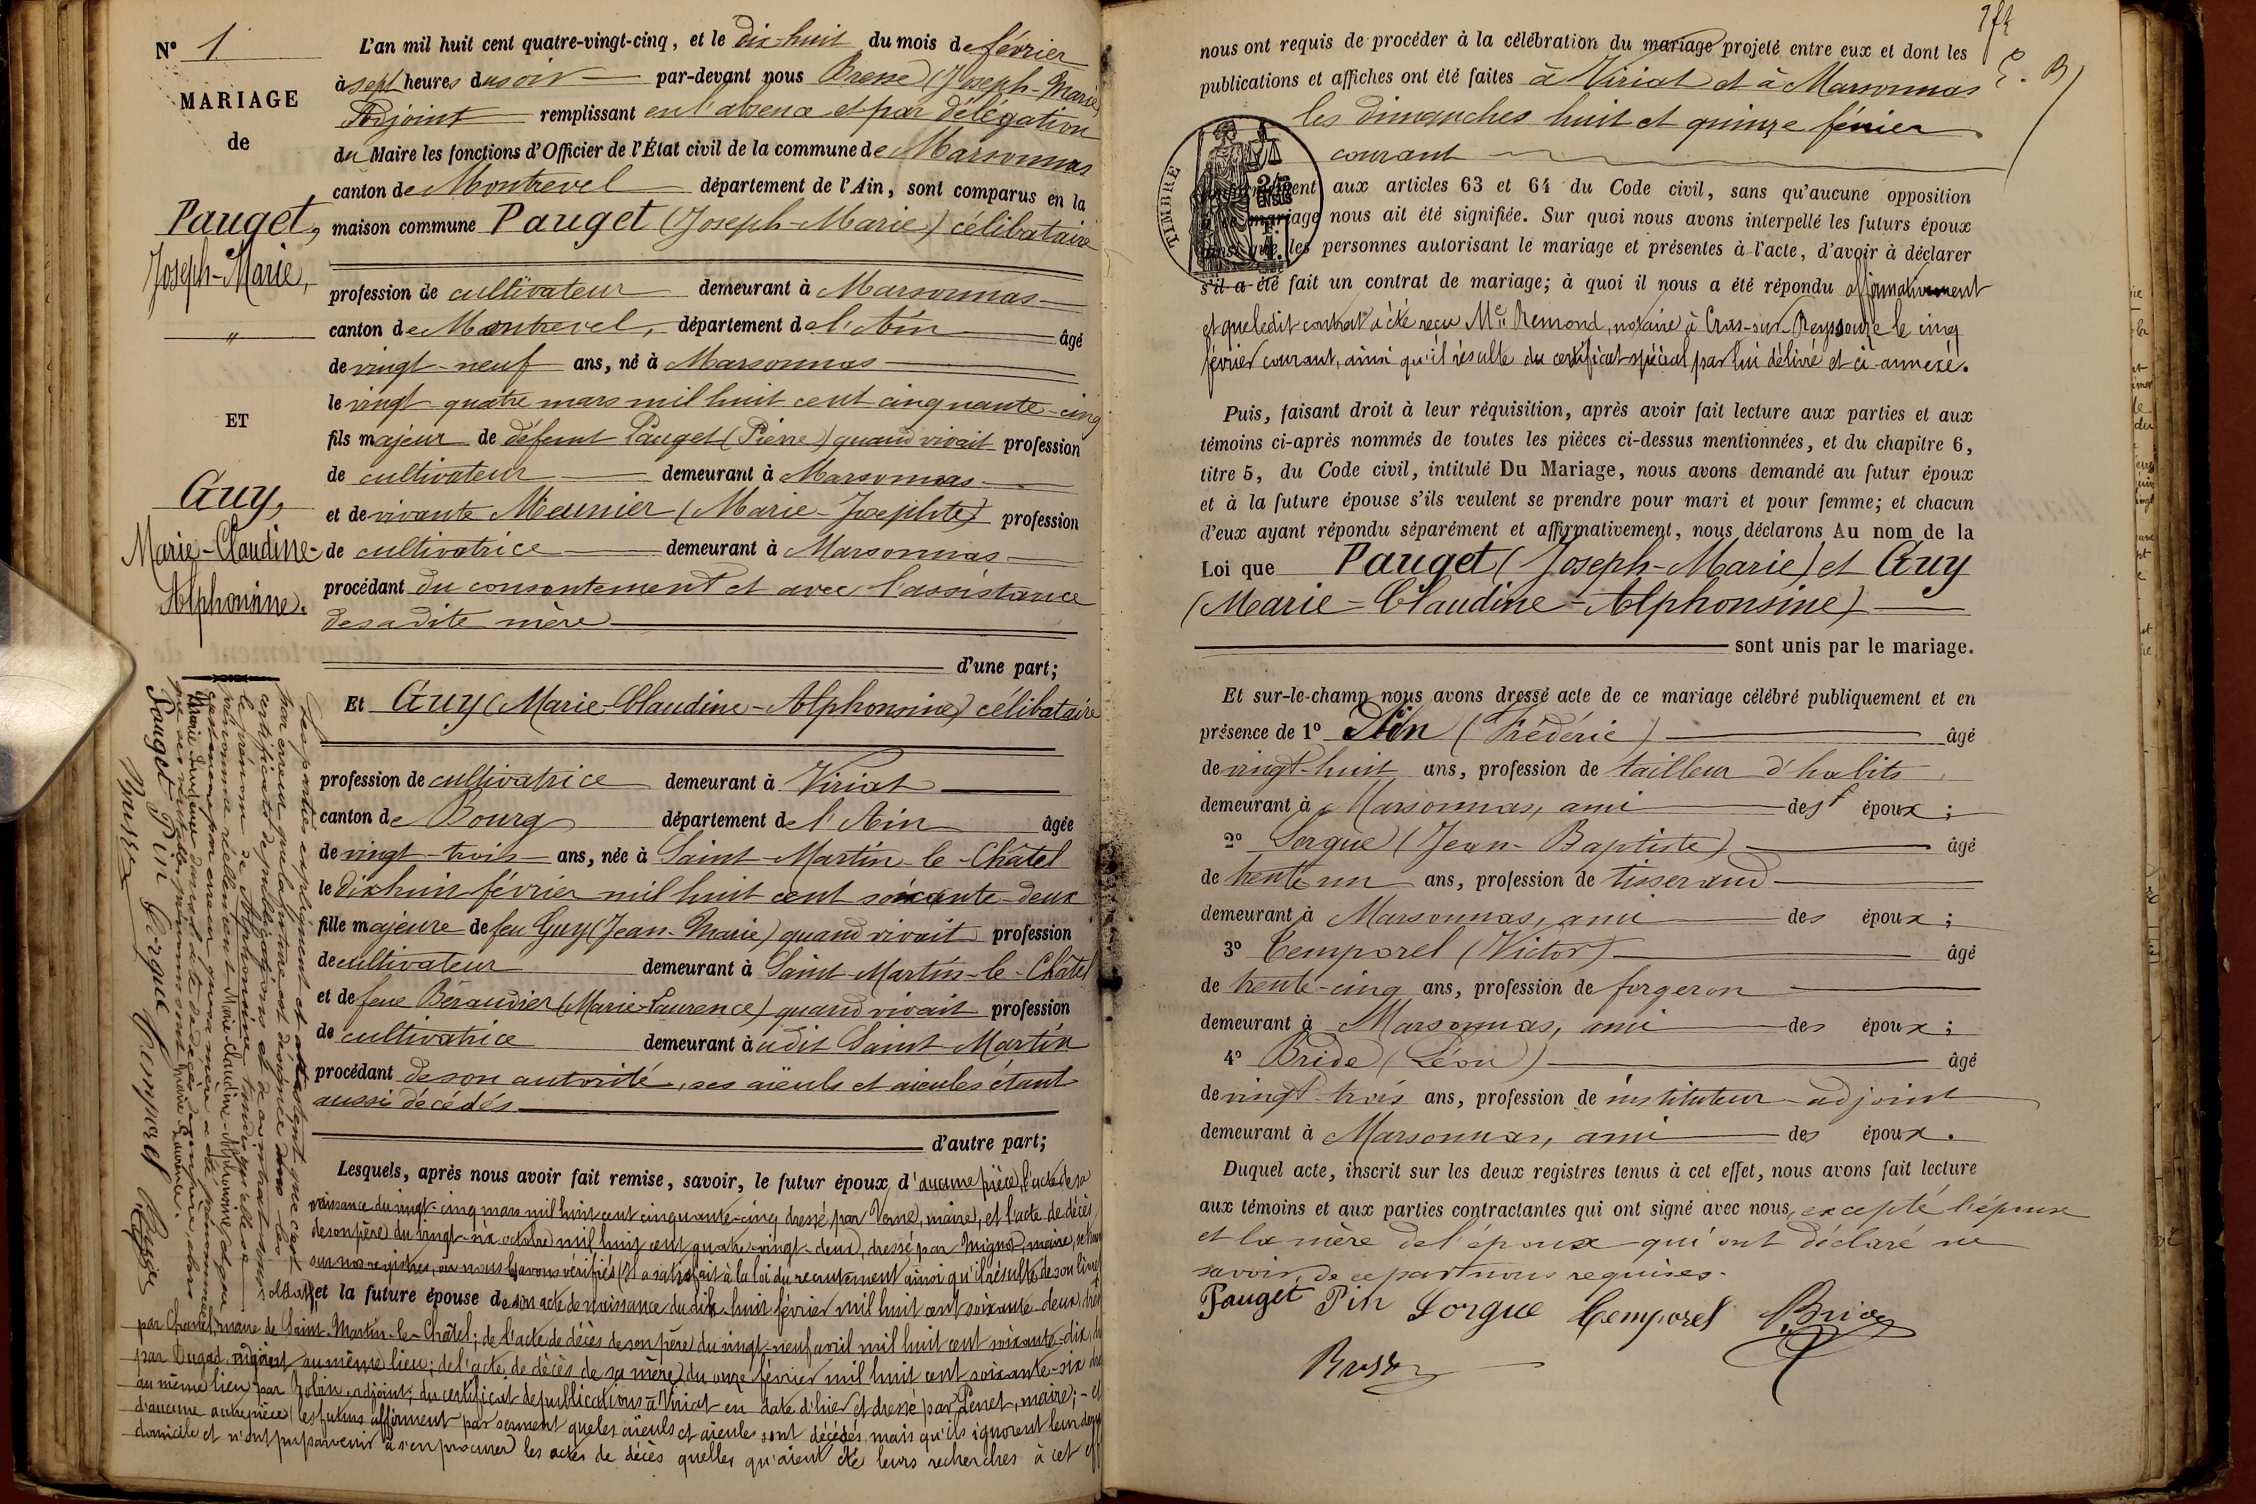 N° 1
MARIAGE
de
Pauget,
Joseph-Marie,
"
ET
Guy,
Marie-Claudine-
Alphonsine.
L'an mil huit cent quatre-vingt-cinq, et le dix-huit du mois de février
à sept heures du soir par-devant nous Bresse (Joseph-Marie)
Adjoint remplissant en l'absence et par délégation
du Maire les fonctions d'Officier de l'État civil de la commune de Marsonnas
canton de Montrevel département de l'Ain, sont comparus en la
maison commune Pauget (Joseph-Marie) célibataire
profession de cultivateur demeurant à Marsonnas
canton de Montrevel, département de l'Ain âgé
de vingt-neuf ans, né à Marsonnas
le vingt-quatre mars mil huit cent cinquante-cinq
fils majeur de défunt Pauget (Pierre) quand vivait profession
de cultivateur demeurant à Marsonnas
et de vivante Meunier (Marie-Josephte) profession
de cultivatrice demeurant à Marsonnas
procédant du consentement et avec l'assistance
de sa dite mère
d'une part;
Et Guy (Marie-Claudine-Alphonsine) célibataire
profession de cultivatrice demeurant à Viriat
canton de Bourg département de l'Ain âgée
de vingt-trois ans, née à Saint-Martin-le-Châtel
le dix huit février mil huit cent soixante-deux
fille majeure de feu Guy (Jean-Marie) quand vivait profession
de cultivateur demeurant à Saint-Martin-le-Châtel
et de feue Béraudier (Marie-Laurence) quand vivait profession
de cultivatrice demeurant à udit Saint-Martin
procédant de son autorité, ses aïeuls et aieules étant
aussi décédés
d'autre part;
Lesquels, après nous avoir fait remise, savoir, le futur époux, d'aucune pièce, l'acte de sa
naissance du vingt-cinq mars mil huit cent cinquante-cinq dressé par Verne, maire, et l'acte de décès
de son père du vingt-six octobre mil huit cent quatre-vingt-deux, dressé par Mignot, maire,
sur nos registres, où nous les avons vérifiés (Il a satisfait à la loi du recrutement ainsi qu'il résulte de son livret
et la future épouse de son acte de naissance du dix-huit février mil huit cent soixante-deux,
par Chanel, maire de Saint-Martin-le-Châtel; de l'acte de décès de son père du vingt-neuf avril mil huit cent soixante-dix,
par Dugad, adjoint au même lieu; de l'acte de décès de sa mère du onze février mil huit cent soixante-six
au même lieu par Robin, adjoint; du certificat de publications à Viriat en date d'hier et dressé par Penet, maire; - et
d'aucune autre pièce, les futurs affirment par serment que les aïeuls et aïeules sont décédés, mais qu'ils ignorent leur
domicile et n'ont pu parvenir à s'en procurer les actes de décès quelles qu'aient été leurs recherches à cet
Les parties expliquent et attestent que c'est
par erreur que la future est dénommée dans les
certificats de publications et de contrat sous
le prénom de Alphonsine, tandis qu'elle se
prénomme réellement Marie-Claudine-Alphonsine, et que
c'est même par erreur que sa mère a été prénommée
Marie-Laurence
Pauget Pin Lorgue Temporel Bride
nous ont requis de procéder à la célébration du mariage projeté entre eux et dont les
publications et affiches ont été faites à Viriat et à Marsonnas
les dimanches huit et quinze février
courant
TIMBRE
aux articles 63 et 64 du Code civil, sans qu'aucune opposition
mariage nous ait été signifiée. Sur quoi nous avons interpellé les futurs époux
ainsi que les personnes autorisant le mariage et présentes à l'acte, d'avoir à déclarer
s'il a été fait un contrat de mariage; à quoi il nous a été répondu affirmativement
et que ledit contrat a été reçu Me Remond, notaire à Cras-sur-Reyssouze le cinq
février courant, ainsi qu'il résulte du certificat spécial par lui délivré et ci-annexé.
Puis, faisant droit à leur réquisition, après avoir fait lecture aux parties et aux
témoins ci-après nommés de toutes les pièces ci-dessus mentionnées, et du chapitre 6,
titre 5, du Code civil, intitulé Du Mariage, nous avons demandé au futur époux
et à la future épouse s'ils veulent se prendre pour mari et pour femme; et chacun
d'eux ayant répondu séparément et affirmativement, nous déclarons Au nom de la
Loi que Pauget (Joseph-Marie) et Guy
(Marie-Claudine-Alphonsine)
sont unis par le mariage.
Et sur-le-champ nous avons dressé acte de ce mariage célébré publiquement et en
présence de 1° Pin (Frédéric) âgé
de vingt-huit ans, profession de tailleur d'habits
demeurant à Marsonnas, ami des époux;
2° Lorgue (Jean-Baptiste) âgé
de trente un ans, profession de tisserand
demeurant à Marsonnas, ami des époux;
3° Temporel (Victor) âgé
de trente-cinq ans, profession de forgeron
demeurant à Marsonnas, ami des époux;
4° Bride (Léon) âgé
de vingt-trois ans, profession de instituteur-adjoint
demeurant à Marsonnas, ami des époux.
Duquel acte, inscrit sur les deux registres tenus à cet effet, nous avons fait lecture
aux témoins et aux parties contractantes qui ont signé avec nous, excepté l'épouse
et la mère de l'époux qui ont déclaré ne
savoir, de ce par nous requises.
Pauget Pin Lorgue Temporel Bride
Bresse